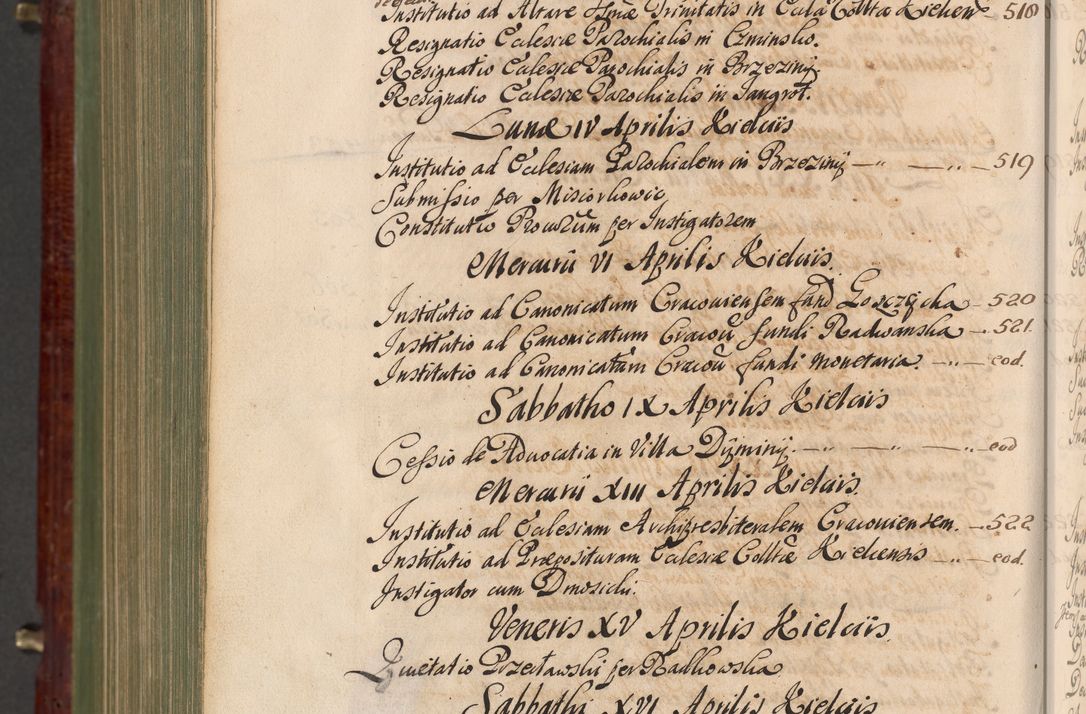 Institutio ad Altare Ssmæ Trinitatis in Eccla Colltæ Kielcen - 518
Resignatio Ecclesiæ Parochialis in Czminsko.
Resignatio Ecclesiæ Parochialis in Brzeziny
Resignatio Ecclesiæ Parochialis in Jangrot.
Lunæ IV Aprilis Kielciis
Institutio ad Ecclesiam Parochialem in Brzeziny — " — " — 519
Submissio per Misiorkowic
Constitutio Procurum per Instigatorem
Mercurii VI Aprilis Kielciis.
Institutio ad Canonicatum Cracouiensem fund - 520
Institutio ad Canonicatum Cracou fundi Radwanska - 521.
Institutio ad Canonicatum Cracou fundi Monetaria. — " — eod.
Sabbatho IX Aprilis Kielciis
Cessio de Advocatia in Villa Dyminy. — " — " — " — eod
Mercurii XIII Aprilis Kielciis.
Institutio ad Ecclesiam Archipresbiteralem Cracouiensem. - 522
Institutio ad Præposituram Ecclesiæ Colltæ Kielcensis — " — eod.
Instigator cum Dmosicki.
Veneris XV Aprilis Kielciis.
Quietatio Przetawski per Radkowska
Sabbathi XVI Aprilis Kielciis